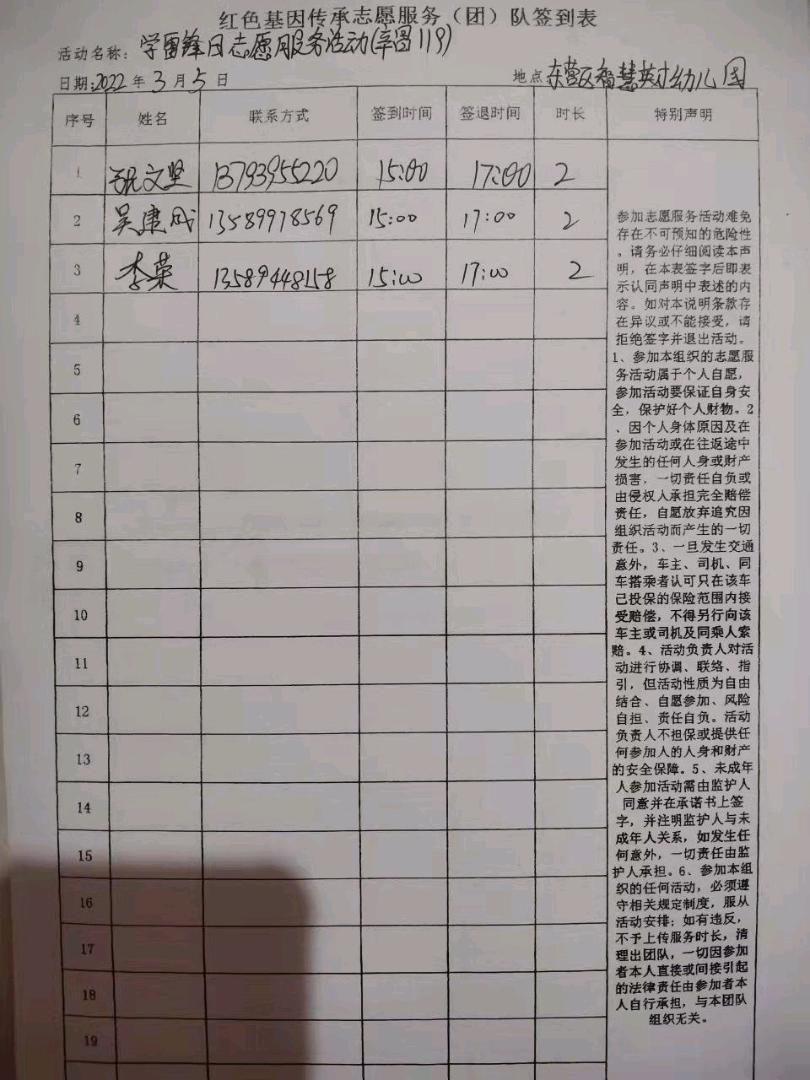 红色基因传承志愿服务（团）队签到表
活动名称：学雷锋日志愿服务活动(辛图119)
日期:2022年3月5日 地点 东营区智慧英才幼儿园
序号 姓名 联系方式 签到时间 签退时间 时长 特别声明
1 张文坚 13793955220 15:00 17:00 2
2 吴建成 13589978569 15:00 17:00 2
3 李荣 13589448158 15:00 17:00 2
4
5
6
7
8
9
10
11
12
13
14
15
16
17
18
19
参加志愿服务活动难免
存在不可预知的危险性
。请务必仔细阅读本声
明，在本表签字后即表
示认同声明中表述的内
容。如对本说明条款存
在异议或不能接受，请
拒绝签字并退出活动。
1、参加本组织的志愿服
务活动属于个人自愿，
参加活动要保证自身安
全，保护好个人财物。2
、因个人身体原因及在
参加活动或在往返途中
发生的任何人身或财产
损害，一切责任自负或
由侵权人承担完全赔偿
责任，自愿放弃追究因
组织活动而产生的一切
责任。3、一旦发生交通
意外，车主、司机、同
车搭乘者认可只在该车
已投保的保险范围内接
受赔偿，不得另行向该
车主或司机及同乘人索
赔。4、活动负责人对活
动进行协调、联络、指
引，但活动性质为自由
结合、自愿参加、风险
自担、责任自负。活动
负责人不担保或提供任
何参加人的人身和财产
的安全保障。5、未成年
人参加活动需由监护人
同意并在承诺书上签
字，并注明监护人与未
成年人关系，如发生任
何意外，一切责任由监
护人承担。6、参加本组
织的任何活动，必须遵
守相关规定制度，服从
活动安排；如有违反，
不予上传服务时长，清
理出团队，一切因参加
者本人直接或间接引起
的法律责任由参加者本
人自行承担，与本团队
组织无关。